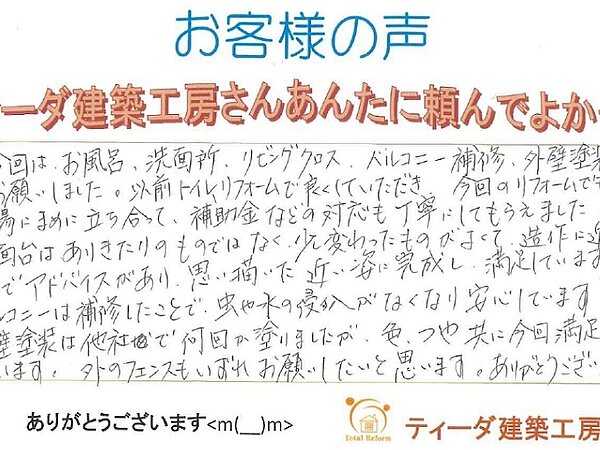 お客様の声
ィーダ建築工房さんあんたに頼んでよか
今回は、お風呂、洗面所、リビングクロス、バルコニー補修、外壁塗装
お願いしました。以前トイレリフォームで良くしていただき、今回のリフォームで
場にまめに立ち合って、補助金などの対応も丁寧にしてもらえました
面台はありきたりのものではなく、少し変わったものがよくて、造作に
でアドバイスがあり、思い描いた近い姿に完成し、満足しています
ルコニーは補修したことで、虫や水の侵入がなくなり安心しています
壁塗装は他社で何回か塗りましたが、色、つや共に今回満足
います。外のフェンスもいずれお願いしたいと思います。ありがとうござい
ありがとうございます<m(__)m>
Total Reform
ティーダ建築工房